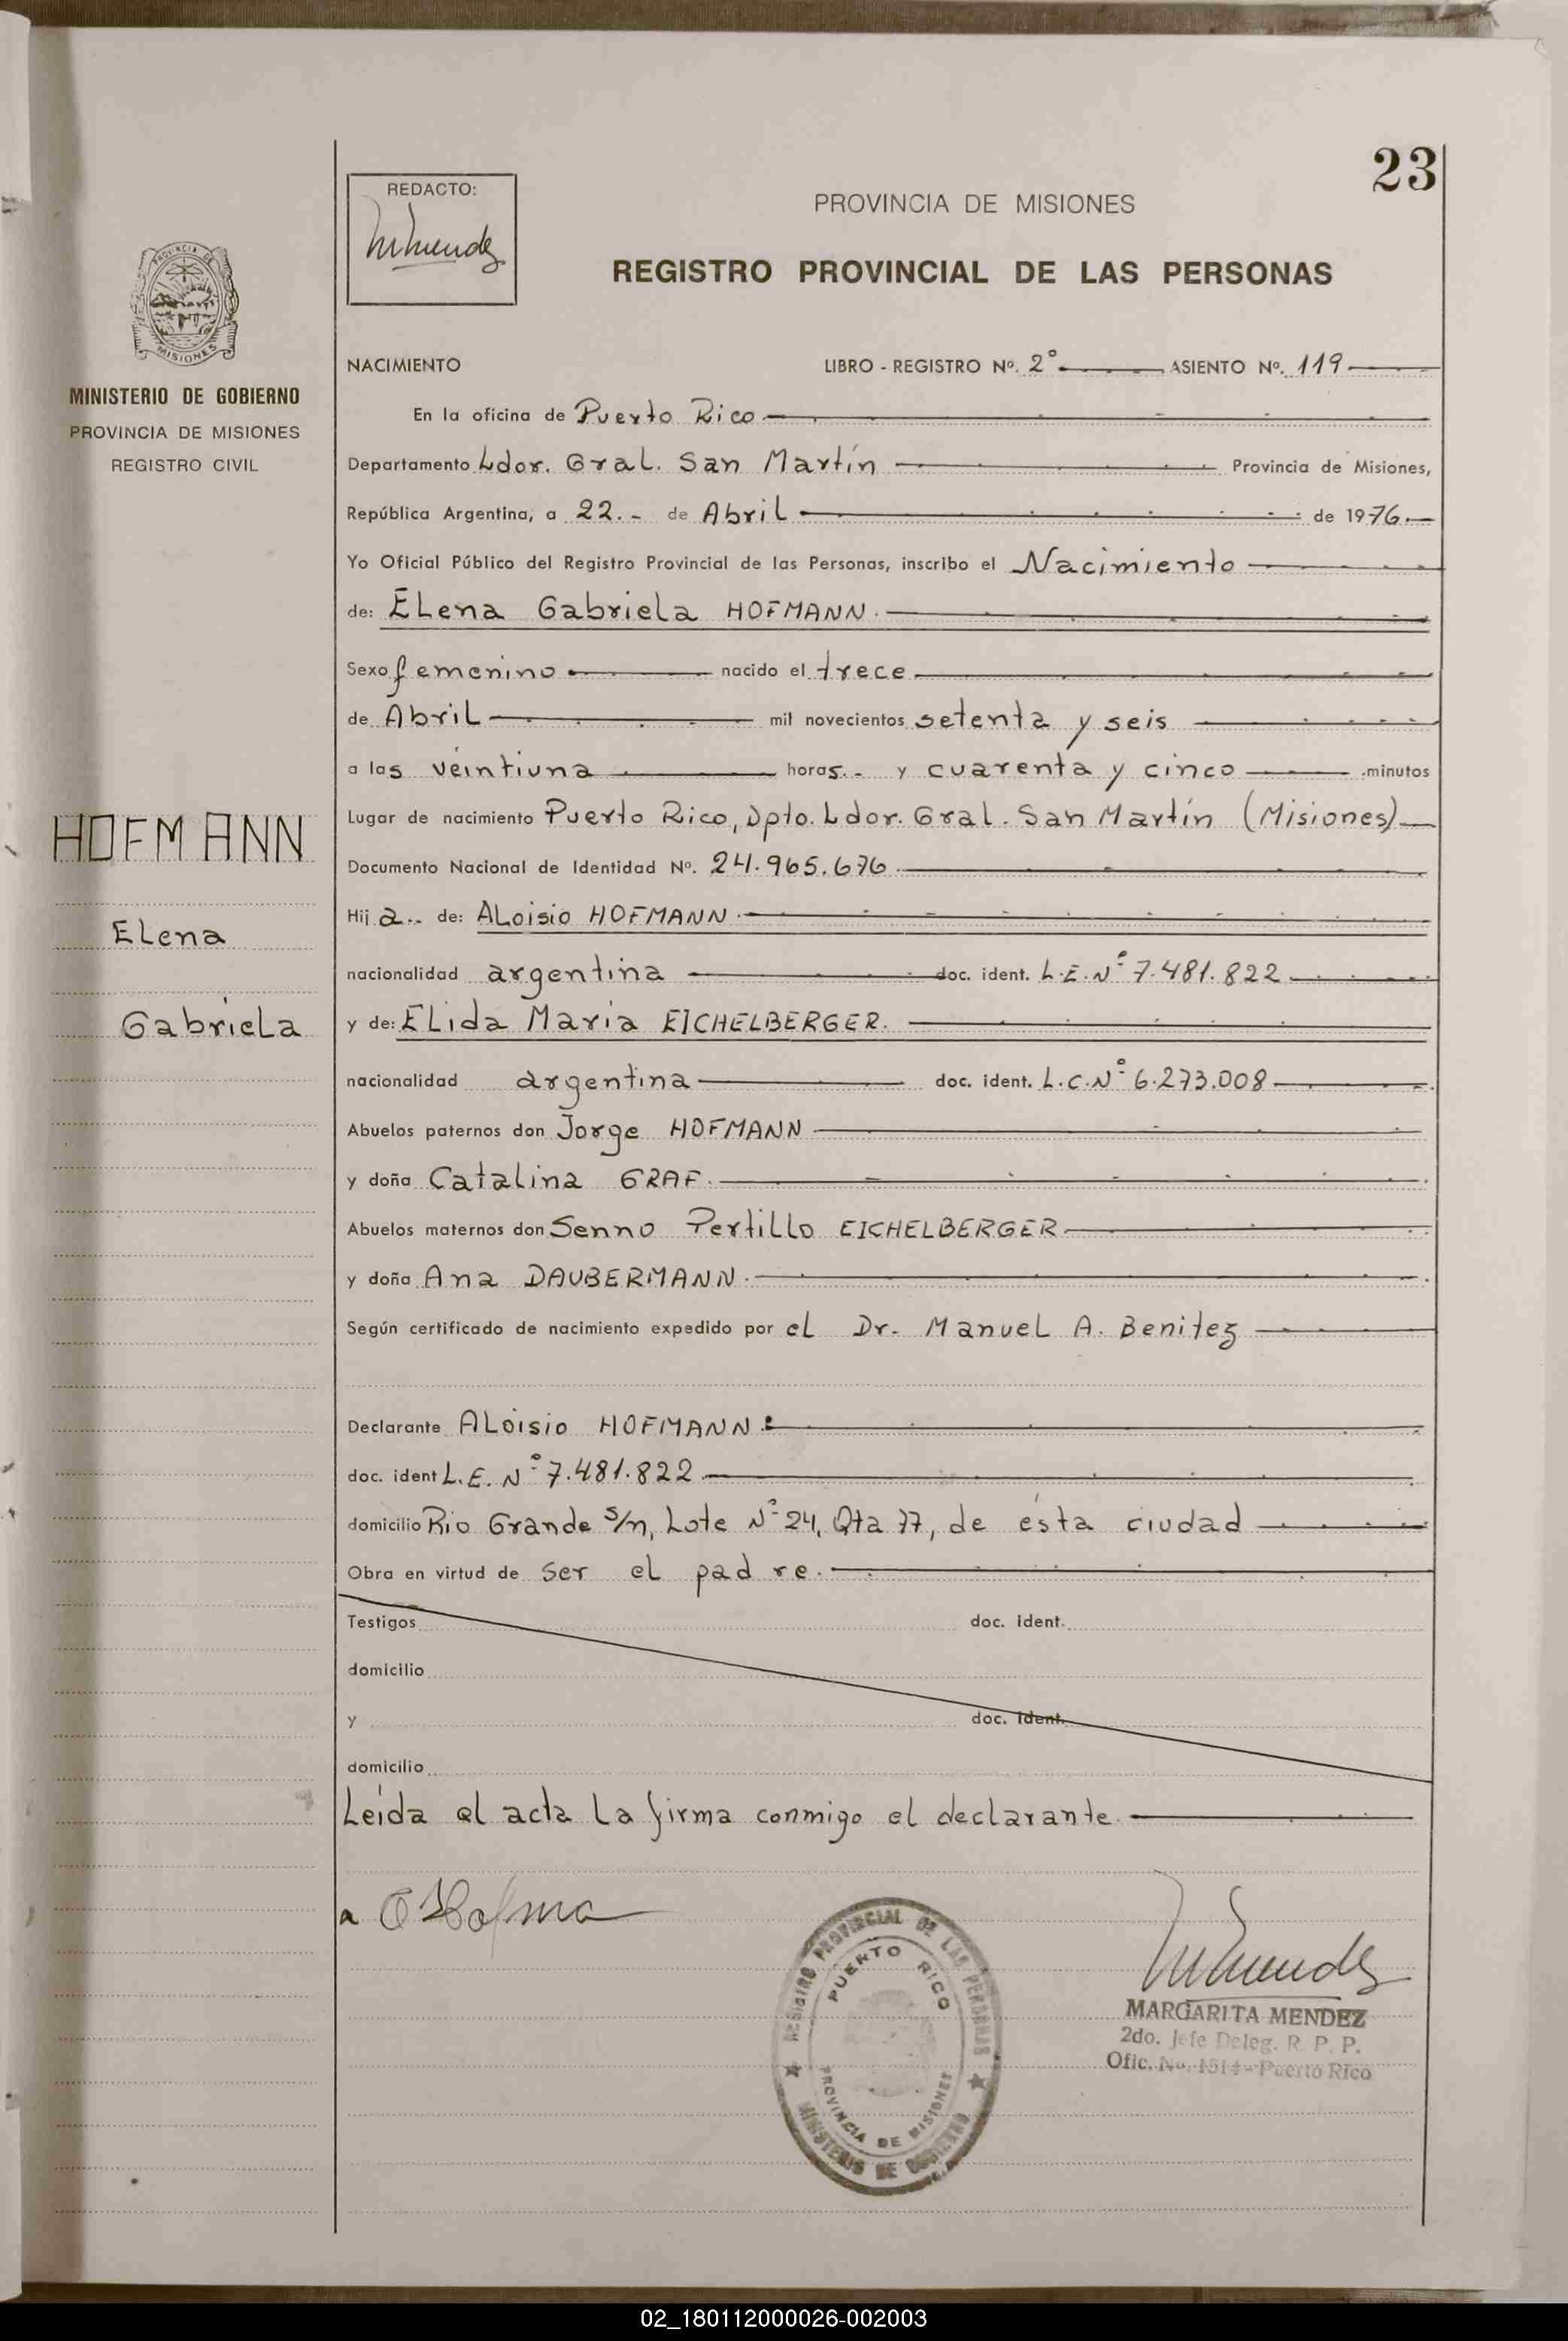 23
REDACTO:
PROVINCIA DE MISIONES
REGISTRO PROVINCIAL DE LAS PERSONAS
PROVINCIA DE
MISIONES
MINISTERIO DE GOBIERNO
PROVINCIA DE MISIONES
REGISTRO CIVIL
HOFMANN
Elena
Gabriela
NACIMIENTO LIBRO - REGISTRO Nº. 2º ASIENTO Nº. 119
En la oficina de Puerto Rico
Departamento Ldor. Gral. San Martín Provincia de Misiones,
República Argentina, a 22.- de Abril de 1976.
Yo Oficial Público del Registro Provincial de las Personas, inscribo el Nacimiento
de: Elena Gabriela HOFMANN.
Sexo femenino nacido el trece
de Abril mil novecientos setenta y seis
a las veintiuna horas.- y cuarenta y cinco minutos
Lugar de nacimiento Puerto Rico, Dpto. Ldor. Gral. San Martín (Misiones)
Documento Nacional de Identidad Nº. 24.965.676.
Hij a.. de: Aloisio HOFMANN.
nacionalidad argentina doc. ident. L.E. Nº 7.481.822
y de: Elida Maria EICHELBERGER.
nacionalidad argentina doc. ident. L.C. Nº 6.273.008
Abuelos paternos don Jorge HOFMANN
y doña Catalina GRAF.
Abuelos maternos don Senno Pertillo EICHELBERGER
y doña Ana DAUBERMANN.
Según certificado de nacimiento expedido por el Dr. Manuel A. Benitez
Declarante Aloisio HOFMANN.
doc. ident L.E. Nº 7.481.822
domicilio Rio Grande s/n, Lote Nº 24, Qta 77, de ésta ciudad
Obra en virtud de ser el padre.
Testigos doc. ident.
domicilio
y doc. ident.
domicilio
Leída el acta la firma conmigo el declarante.
REGISTRO PROVINCIAL DE LAS PERSONAS
PUERTO RICO
PROVINCIA DE MISIONES
MINISTERIO DE GOBIERNO
MARGARITA MENDEZ
2do. Jefe Deleg. R. P. P.
Ofic. No. 1514 - Puerto Rico
02_180112000026-002003